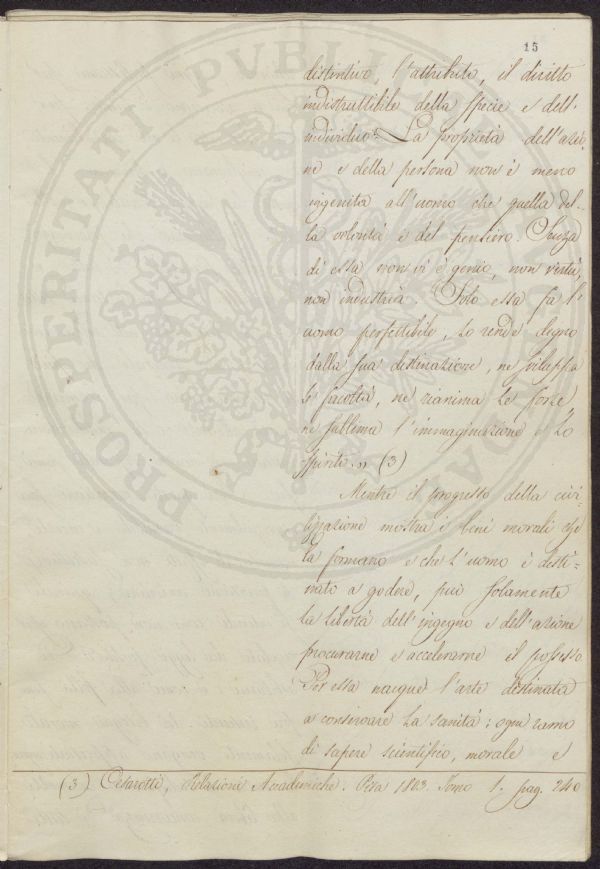 15
distintivo, l'attributo, il diritto
indistruttibile della specie e dell'
individuo. La proprietà dell'azio-
ne e della persona non è meno
ingenita all'uomo che quella del-
la volontà e del pensiero. Senza
di essa non vi è genio, non virtù,
non industria. Solo essa fa l'
uomo perfettibile, lo rende degno
dalla sua destinazione, ne sviluppa
le facoltà, ne rianima le forze
ne sublima l'immaginazione e lo
spirito. » (3)
Mentre il progresso della civi-
lizzazione mostra i beni morali che
la formano e che l'uomo è desti-
nato a godere, può solamente
la libertà dell'ingegno e dell'azione
procurarne e accelerarne il possesso
Per essa nacque l'arte destinata
a conservare la sanità; ogni ramo
di sapere scientifico, morale e
(3) Cesarotti, Relazioni Accademiche. Pisa 1803. Tomo 1. pag. 240
PROSPERITATI PUBLICAE